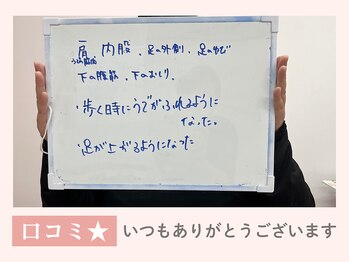 肩 内股、足の外側、足のゆび
下の腹筋、下のおしり、
・歩く時にうでがふれるように
なった。
・足が上がるようになった
口コミ★ いつもありがとうございます